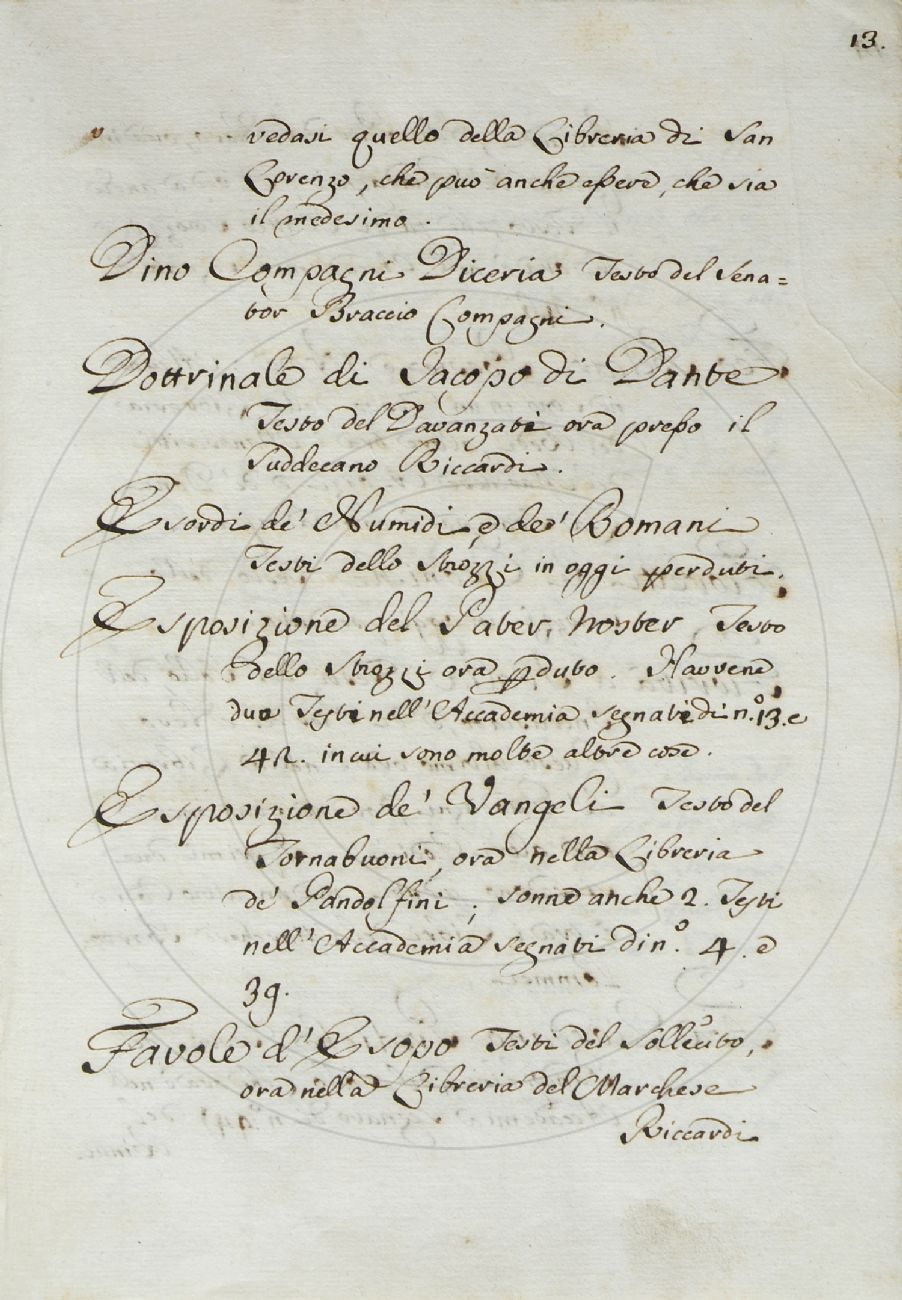 13.
vedasi quello della Libreria di San
Lorenzo, che può anche essere, che sia
il medesimo.
Dino Compagni Diceria Testo del Sena=
tor Braccio Compagni.
Dottrinale di Jacopo di Dante
Testo del Davanzati ora presso il
Suddecano Riccardi.
Esordi de' Numidi, e de' Romani
Testi dello Strozzi in oggi perduti.
Esposizione del Pater, Noster, Testo
dello Strozzi ora pduto. Havvene
due Testi nell'Accademia segnati di n.º 13. e
42. in cui sono molte altre cose.
Esposizione de' Vangeli Testo del
Tornabuoni, ora nella Libreria
de' Pandolfini; sonne anche 2. Testi
nell'Accademia segnati di n.º 4. e
39.
Favole d'Esopo Testi del Sollecito,
ora nella Libreria del Marchese
Riccardi